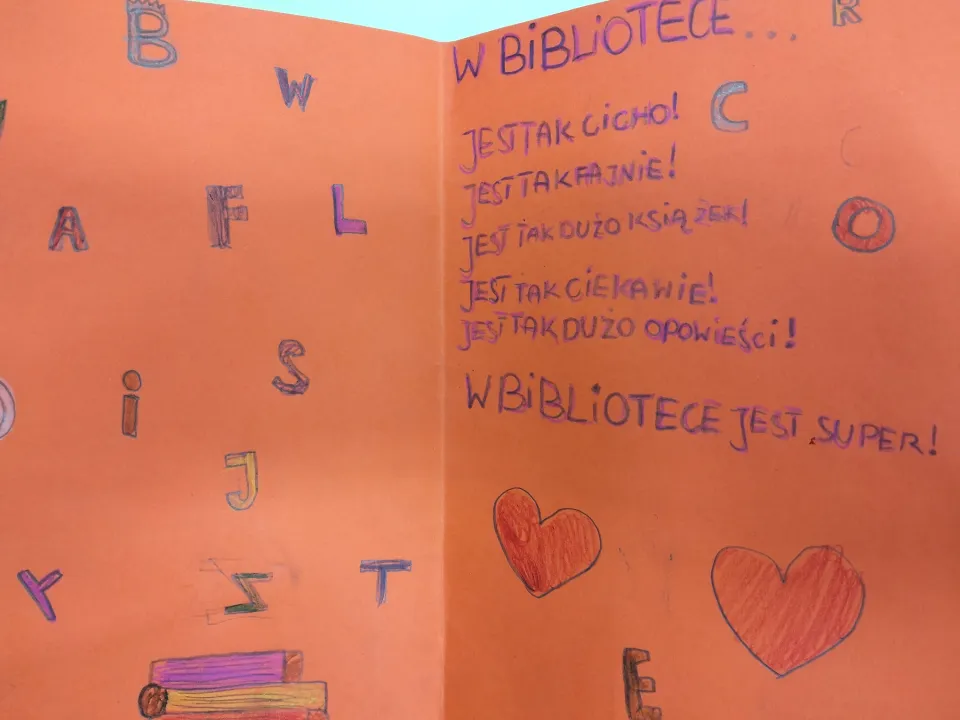 B
W
A F L
S
i
J
Y Z T
W BiBLiOTECE...
R
JEST TAK CiCHO!
C
JEST TAK FAJNiE!
JEST TAK DUŻO KSIĄŻEK!
O
JEST TAK CIEKAWIE!
JEST TAK DUŻO OPOWiEŚCi!
W BiBLiOTECE JEST SUPER!
E